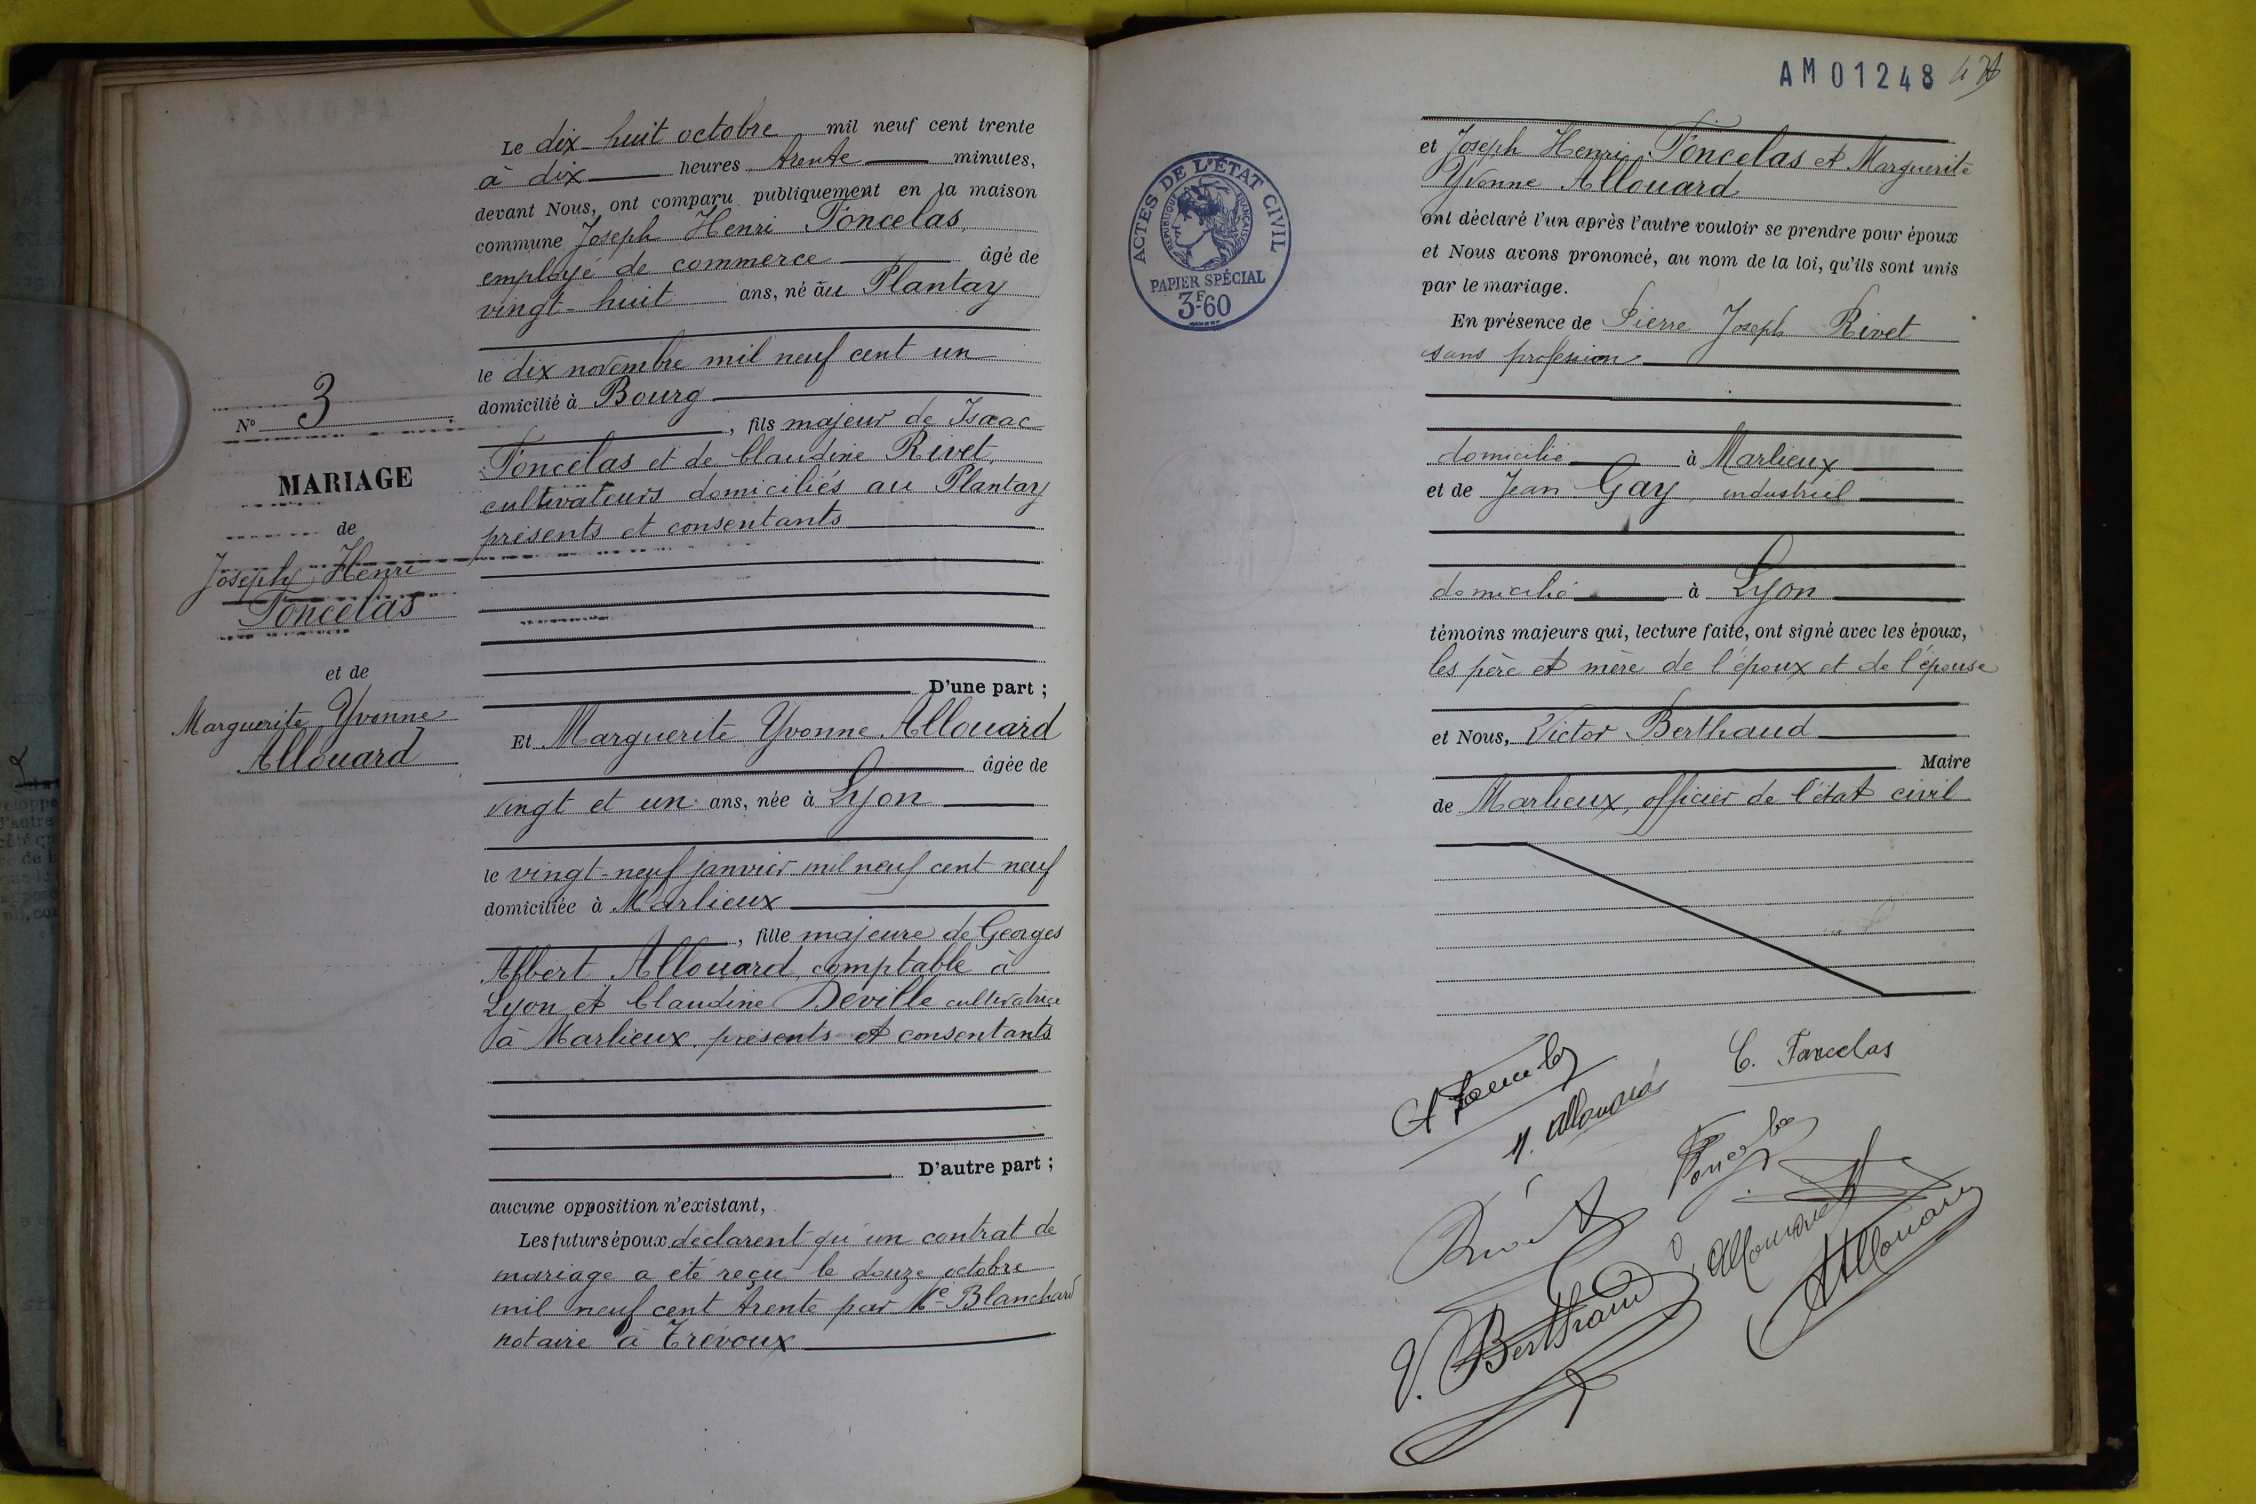 N° 3
MARIAGE
de
Joseph Henri
Foncelas
et de
Marguerite Yvonne
Allouard
Le dix-huit octobre mil neuf cent trente
à dix heures trente minutes,
devant Nous, ont comparu publiquement en la maison
commune Joseph Henri Foncelas,
employé de commerce âgé de
vingt-huit ans, né au Plantay
le dix novembre mil neuf cent un
domicilié à Bourg
, fils majeur de Isaac
Foncelas et de Claudine Rivet,
cultivateurs domiciliés au Plantay
présents et consentants
D'une part ;
Et Marguerite Yvonne Allouard
âgée de
vingt et un ans, née à Lyon
le vingt-neuf janvier mil neuf cent neuf
domiciliée à Marlieux
, fille majeure de Georges
Albert Allouard, comptable à
Lyon et Claudine Deville cultivatrice
à Marlieux, présents et consentants
D'autre part ;
aucune opposition n'existant,
Les futurs époux déclarent qu'un contrat de
mariage a été reçu le douze octobre
mil neuf cent trente par Me Blanchard
notaire à Trévoux
AM01248
ACTES DE L'ÉTAT CIVIL
RÉPUBLIQUE FRANÇAISE
PAPIER SPÉCIAL
3F60
et Joseph Henri Foncelas et Marguerite
Yvonne Allouard
ont déclaré l'un après l'autre vouloir se prendre pour époux
et Nous avons prononcé, au nom de la loi, qu'ils sont unis
par le mariage.
En présence de Pierre Joseph Rivet
sans profession
domicilié à Marlieux
et de Jean Gay, industriel
domicilié à Lyon
témoins majeurs qui, lecture faite, ont signé avec les époux,
les père et mère de l'époux et de l'épouse
et Nous, Victor Berthaud
Maire
de Marlieux, officier de l'état civil
C. Foncelas
Y. Allouard
Foncelas
Rivet
Allouard
Allouard
V. Berthaud